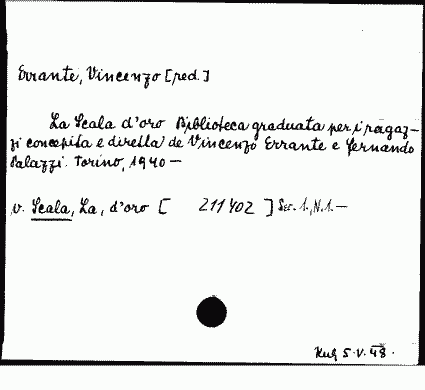 Errante, Vincenzo [red.]
La Scala d'oro Biblioteca graduata per i ragaz-
zi concepita e diretta de Vincenzo Errante e Fernando
Palazzi. Torino, 1940 —
v. Scala, La, d'oro [ 211402 ] Ser. 1., N.1. —
5.V.48.